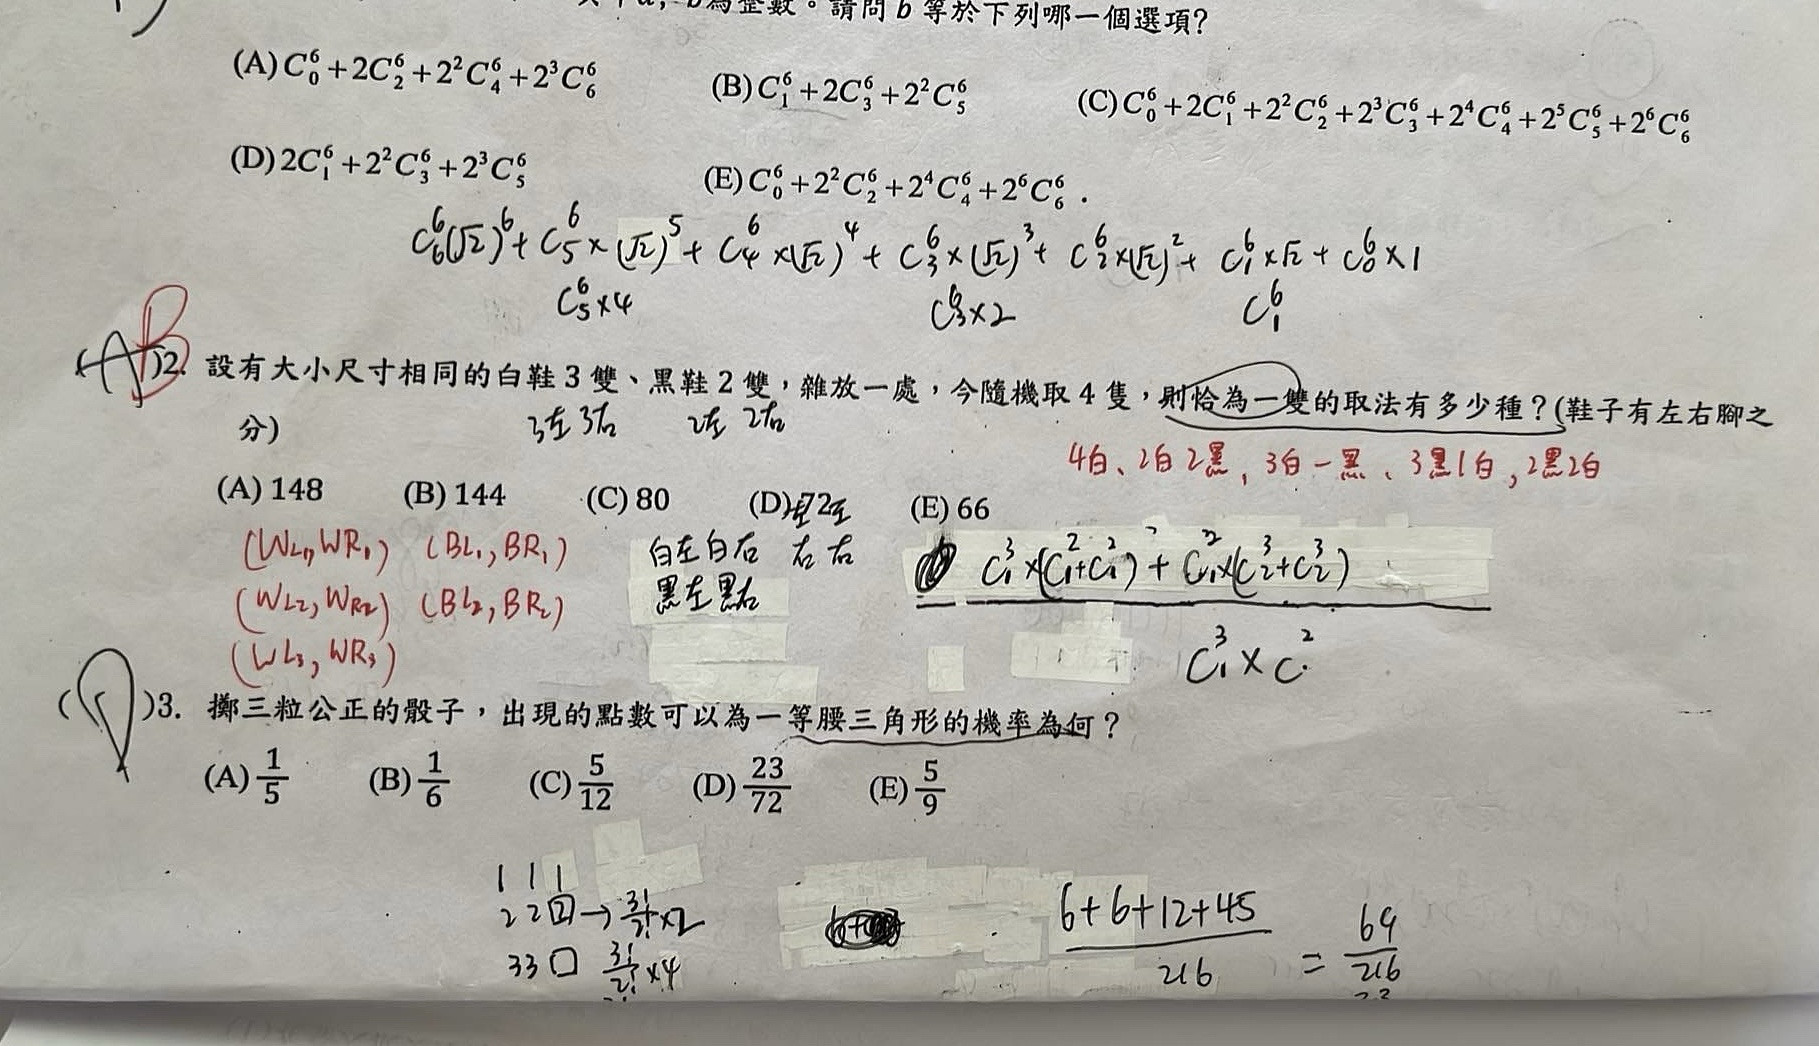 為整數。請問 b 等於下列哪一個選項?
(A) C₀⁶+2C₂⁶+2²C₄⁶+2³C₆⁶ (B) C₁⁶+2C₃⁶+2²C₅⁶ (C) C₀⁶+2C₁⁶+2²C₂⁶+2³C₃⁶+2⁴C₄⁶+2⁵C₅⁶+2⁶C₆⁶
(D) 2C₁⁶+2²C₃⁶+2³C₅⁶ (E) C₀⁶+2²C₂⁶+2⁴C₄⁶+2⁶C₆⁶ .
C₆⁶(√2)⁶+C₅⁶×(√2)⁵+C₄⁶×(√2)⁴+C₃⁶×(√2)³+C₂⁶×(√2)²+C₁⁶×√2+C₀⁶×1
C₅⁶×4 C₃⁶×2 C₁⁶
(A)B 2. 設有大小尺寸相同的白鞋 3 雙、黑鞋 2 雙,雜放一處,今隨機取 4 隻,則恰為一雙的取法有多少種?(鞋子有左右腳之
分) 3左 3右 2左 2右
4白、2白2黑、3白一黑、3黑1白,2黑2白
(A) 148 (B) 144 (C) 80 (D) 72 (E) 66
(WL₁,WR₁) (BL₁,BR₁) 白左白右 右右 C₁³×(C₁²+C₁²) + C₁²×(C₂³+C₂³)
(WL₂,WR₂) (BL₂,BR₂) 黑左黑右
(WL₃,WR₃) C₁³×C²
( )3. 擲三粒公正的骰子,出現的點數可以為一等腰三角形的機率為何?
(A) 1/5 (B) 1/6 (C) 5/12 (D) 23/72 (E) 5/9
1 1 1
2 2 → 3!/2!×2 6+6+12+45/216 = 69/216
33□ 3!/2!×4